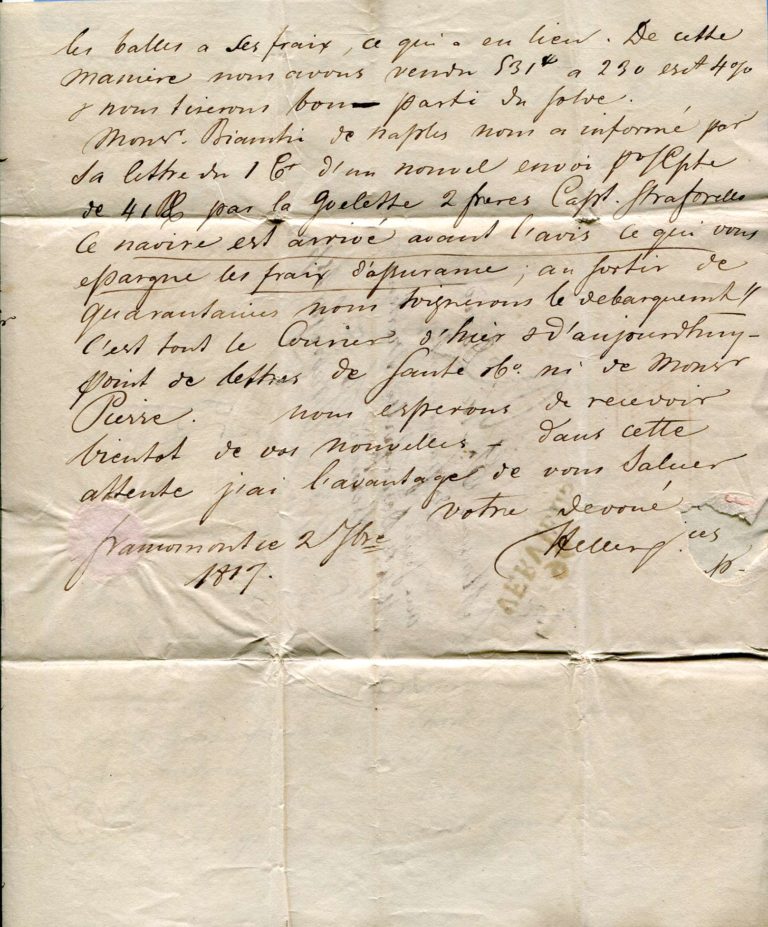 les balles a ses fraix, ce qui a eu lieu. De cette
maniere nous avons vendu 531 a 230 esct 4%
& nous tirerons bon parti du solde.
Monsr. Bianchi de naples nous a informé par
Sa lettre du 1 Ct d'un nouvel envoi pr Compte
de 41 par la Goelette 2 freres Capt. Straforello
Ce navire est arrivé avant l'avis ce qui vous
epargne les fraix d'assurance; au sortir de
quarantaines nous soignerons le debarquemt"
C'est tout le Courier d'hier & d'aujourdhuy -
point de lettres de ni de Monsr
Pierre. nous esperons de recevoir
bientot de vos nouvelles - dans cette
attente j'ai l'avantage de vous Saluer
votre devoué
framomont ce 2 7bre
1817.